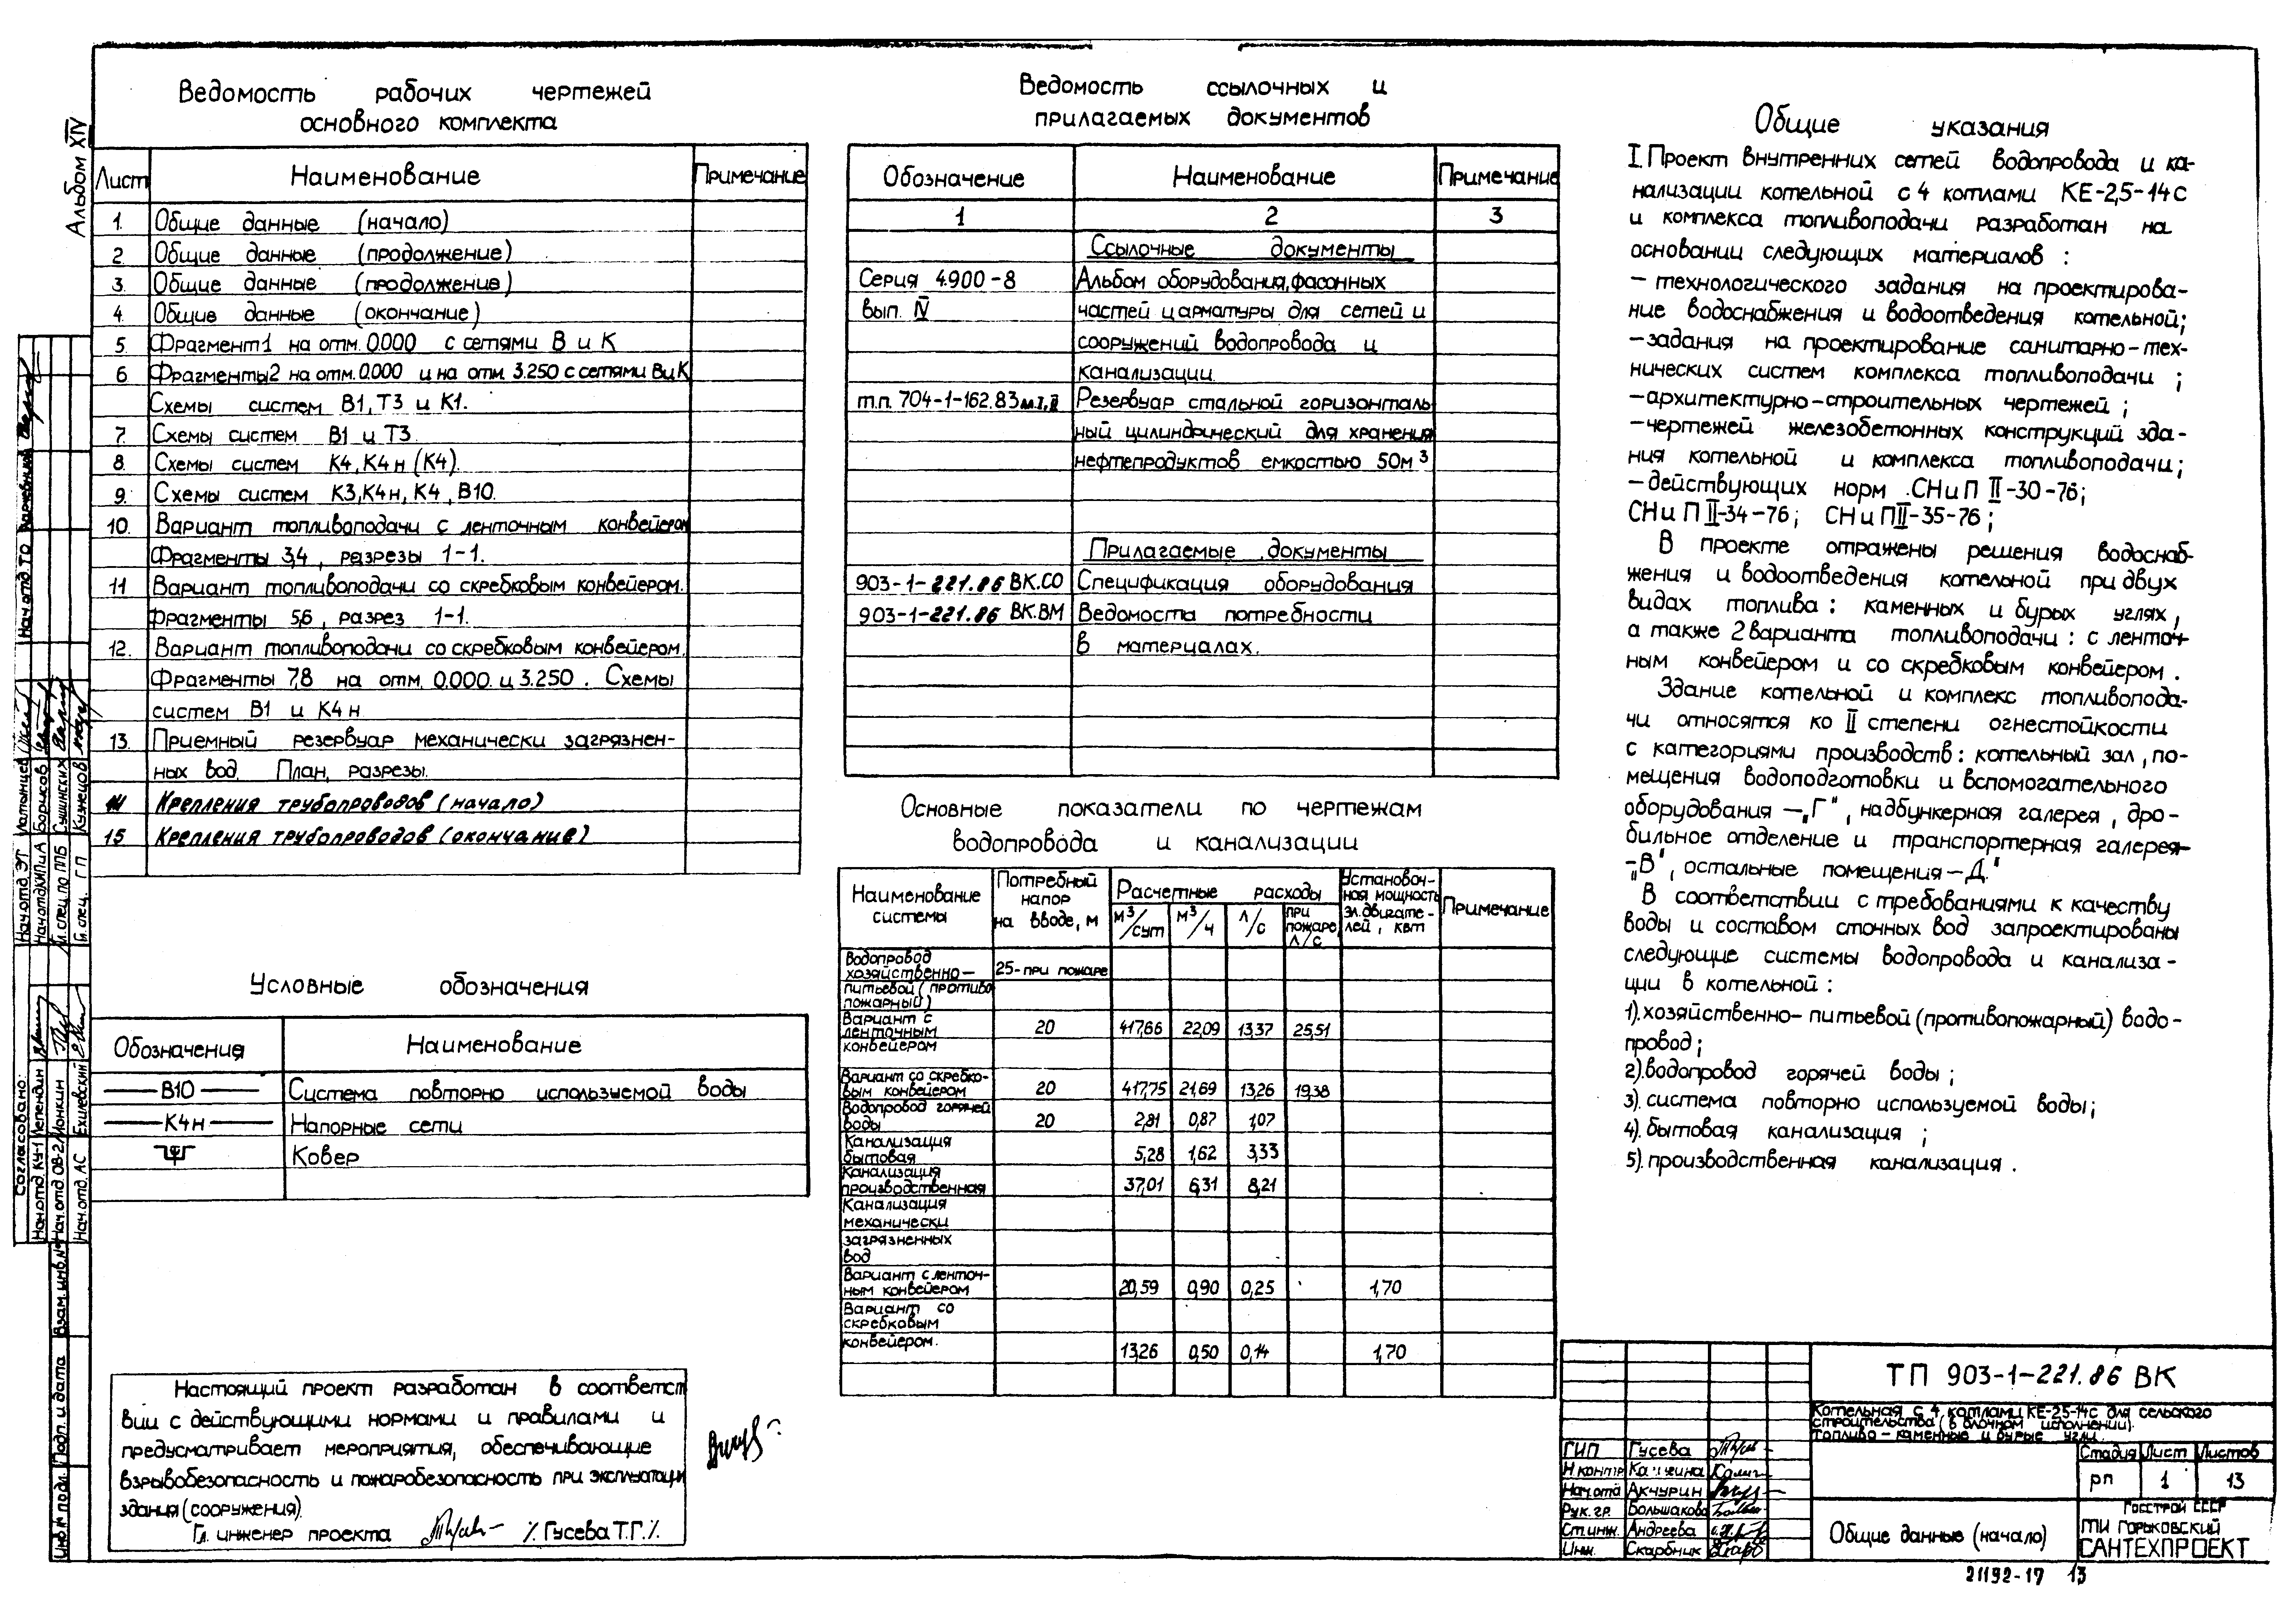 Альбом XIV
Ведомость рабочих чертежей
основного комплекта
Лист Наименование Примечание
1. Общие данные (начало)
2. Общие данные (продолжение)
3. Общие данные (продолжение)
4. Общие данные (окончание)
5. Фрагмент 1 на отм. 0.000 с сетями В и К
6 Фрагменты 2 на отм. 0.000 и на отм. 3.250 с сетями В и К
Схемы систем В1, Т3 и К1.
7. Схемы систем В1 и Т3.
8. Схемы систем К4, К4н (К4).
9. Схемы систем К3, К4н, К4, В10.
10. Вариант топливоподачи с ленточным конвейером
Фрагменты 3,4, разрезы 1-1.
11 Вариант топливоподачи со скребковым конвейером.
Фрагменты 5,6, разрез 1-1.
12. Вариант топливоподачи со скребковым конвейером.
Фрагменты 7,8 на отм. 0.000. и 3.250. Схемы
систем В1 и К4н
13. Приемный резервуар механически загрязнен-
ных вод. План, разрезы.
14 Крепления трубопроводов (начало)
15 Крепления трубопроводов (окончание)
Условные обозначения
Обозначения Наименование
В10 Система повторно используемой воды
К4н Напорные сети
Ковер
Настоящий проект разработан в соответст
вии с действующими нормами и правилами и
предусматривает мероприятия, обеспечивающие
взрывобезопасность и пожаробезопасность при эксплуатации
здания (сооружения).
Гл. инженер проекта /Гусева Т.Г./
Ведомость ссылочных и
прилагаемых документов
Обозначение Наименование Примечание
1 2 3
Ссылочные документы
Серия 4.900-8 Альбом оборудования, фасонных
вып. IV частей и арматуры для сетей и
сооружений водопровода и
канализации.
т.п. 704-1-162.83 ал. I, II Резервуар стальной горизонталь
ный цилиндрический для хранения
нефтепродуктов емкостью 50м³
Прилагаемые документы
903-1-221.86 ВК.СО Спецификация оборудования
903-1-221.86 ВК.ВМ Ведомость потребности
в материалах.
Основные показатели по чертежам
водопровода и канализации
Наименование системы Потребный напор на вводе, м Расчетные расходы Установоч-ная мощность эл.двигате-лей, квт Примечание
м³/сут м³/ч л/с при пожаре, л/с
Водопровод
хозяйственно- 25-при пожаре
питьевой (противо
пожарный)
Вариант с
ленточным 20 417,66 22,09 13,37 25,51
конвейером
Вариант со скребко-
вым конвейером 20 417,75 21,69 13,26 19,38
Водопровод горячей
воды 20 2,81 0,87 1,07
Канализация
бытовая 5,28 1,62 3,33
Канализация
производственная 37,01 6,31 8,21
Канализация
механически
загрязненных
вод
Вариант с ленточ-
ным конвейером 20,59 0,90 0,25 1,70
Вариант со
скребковым
конвейером. 13,26 0,50 0,14 1,70
Общие указания
I. Проект внутренних сетей водопровода и ка-
нализации котельной с 4 котлами КЕ-2,5-14с
и комплекса топливоподачи разработан на
основании следующих материалов :
- технологического задания на проектирова-
ние водоснабжения и водоотведения котельной;
- задания на проектирование санитарно-тех-
нических систем комплекса топливоподачи ;
- архитектурно-строительных чертежей ;
- чертежей железобетонных конструкций зда-
ния котельной и комплекса топливоподачи;
- действующих норм СНиП II-30-76;
СНиП II-34-76; СНиП II-35-76;
В проекте отражены решения водоснаб-
жения и водоотведения котельной при двух
видах топлива : каменных и бурых углях,
а также 2 варианта топливоподачи : с ленточ-
ным конвейером и со скребковым конвейером.
Здание котельной и комплекс топливопода-
чи относятся ко II степени огнестойкости
с категориями производств : котельный зал, по-
мещения водоподготовки и вспомогательного
оборудования - „Г", надбункерная галерея, дро-
бильное отделение и транспортерная галерея-
„В", остальные помещения - Д."
В соответствии с требованиями к качеству
воды и составом сточных вод запроектированы
следующие системы водопровода и канализа-
ции в котельной :
1). хозяйственно-питьевой (противопожарный) водо-
провод;
2). водопровод горячей воды ;
3). система повторно используемой воды;
4). бытовая канализация ;
5). производственная канализация.
ТП 903-1-221.86 ВК
Котельная с 4 котлами КЕ-25-14с для сельского
строительства (в блочном исполнении).
Топливо - каменные и бурые угли.
Стадия Лист Листов
рп 1 13
ГИП Гусева
Н контр
Нач.отд Акчурин
Рук.гр. Большакова
Ст.инж. Андреева
Инж. Скарбник
Общие данные (начало)
Госстрой СССР
ГПИ Горьковский
САНТЕХПРОЕКТ
21192-17 13
Согласовано:
Нач.отд. КУ-1 Лепендин
Нач.отд. ОВ-2 Монкин
Нач.отд. АС Ехилевский
Нач.отд. ЭТ
Нач.отд КИПиА Борисов
Гл.спец. по ППБ Сушинских
Гл.спец. ГП Кузнецов
Нач.отд. ТО
Взам.инв.№
Подп. и дата
Инв.№ подл.